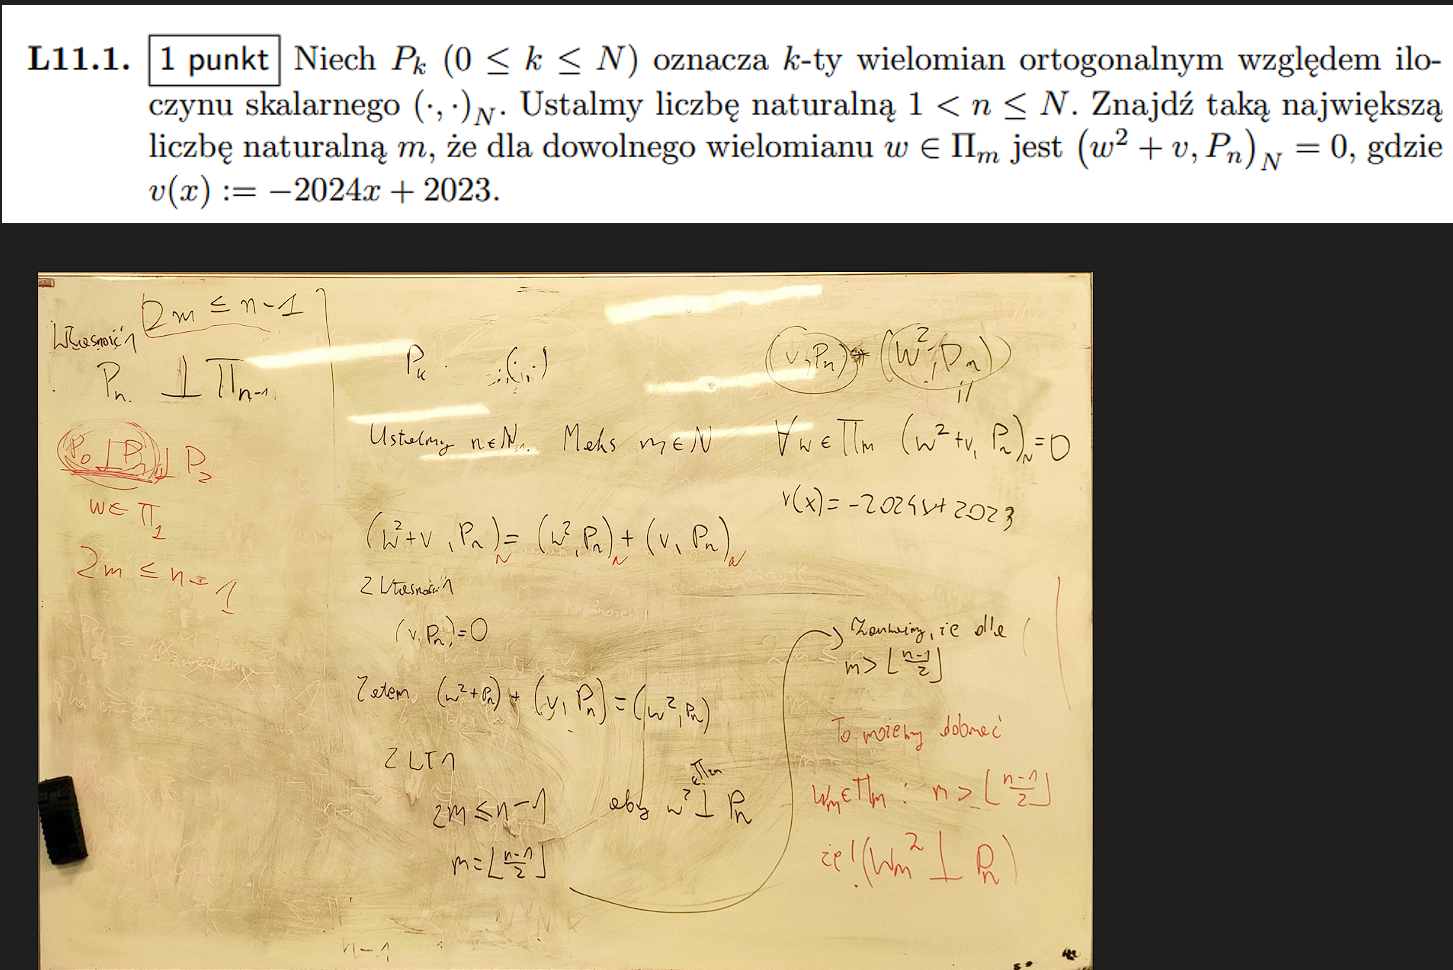 L11.1. 1 punkt Niech P_k (0 ≤ k ≤ N) oznacza k-ty wielomian ortogonalnym względem ilo-
czynu skalarnego (·,·)_N. Ustalmy liczbę naturalną 1 < n ≤ N. Znajdź taką największą
liczbę naturalną m, że dla dowolnego wielomianu w ∈ Π_m jest (w² + v, P_n)_N = 0, gdzie
v(x) := −2024x + 2023.
2m ≤ n-1
Własność 1
P_n ⊥ Π_{n-1}
P_0 ⊥ P_1 ⊥ P_2
w ∈ Π_1
2m ≤ n-1
P_k (·,·)
Ustalmy n∈N. Maks m∈N
(w²+v, P_n)_N = (w², P_n)_N + (v, P_n)_N
Z Własności 1
(v, P_n)=0
Zatem (w²+P_n) + (v, P_n) = (w², P_n)
Z LT1
2m ≤ n-1 aby w² ⊥ P_n
∈Π_{2m}
m = ⌊(n-1)/2⌋
(v, P_n) + (w², P_n)
∀ w ∈ Π_m (w²+v, P_n)_N = 0
v(x) = -2024x + 2023
Zauważmy, że dla
m > ⌊(n-1)/2⌋
To możemy dobrać
w_m ∈ Π_m : m > ⌊(n-1)/2⌋
że !(w_m² ⊥ P_n)
n-1